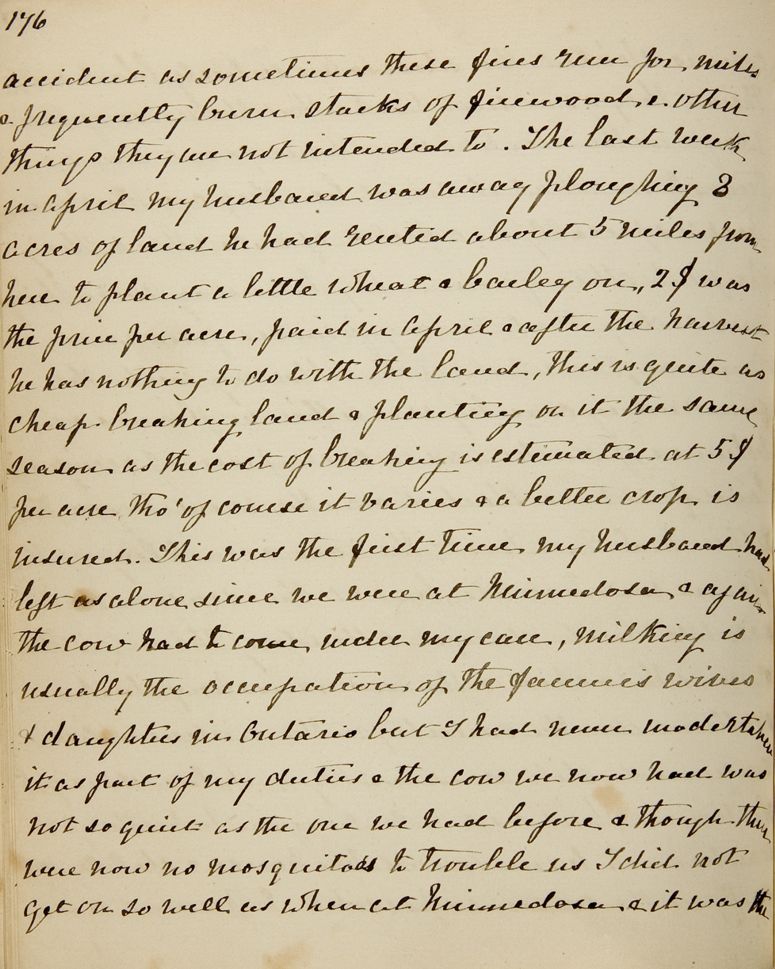 176
accident as sometimes these fires run for miles
& frequently burn stacks of firewood & other
things they are not intended to. The last week
in April my husband was away ploughing 8
acres of land he had rented about 5 miles from
here to plant a little wheat & barley on, 2 $ was
the price per acre, paid in April & after the harvest
he has nothing to do with the land, this is quite as
cheap breaking land & planting on it the same
season as the cost of breaking is estimated at 5 $
per acre tho' of course it varies & a better crop is
insured. This was the first time my husband had
left us alone since we were at Minnedosa & again
the cow had to come under my care, milking is
usually the occupation of the farmers wives
& daughters in Ontario but I had never undertaken
it as part of my duties & the cow we now had was
not so quiet as the one we had before & though there
were now no mosquitoes to trouble us I did not
get on so well as when at Minnedosa & it was the